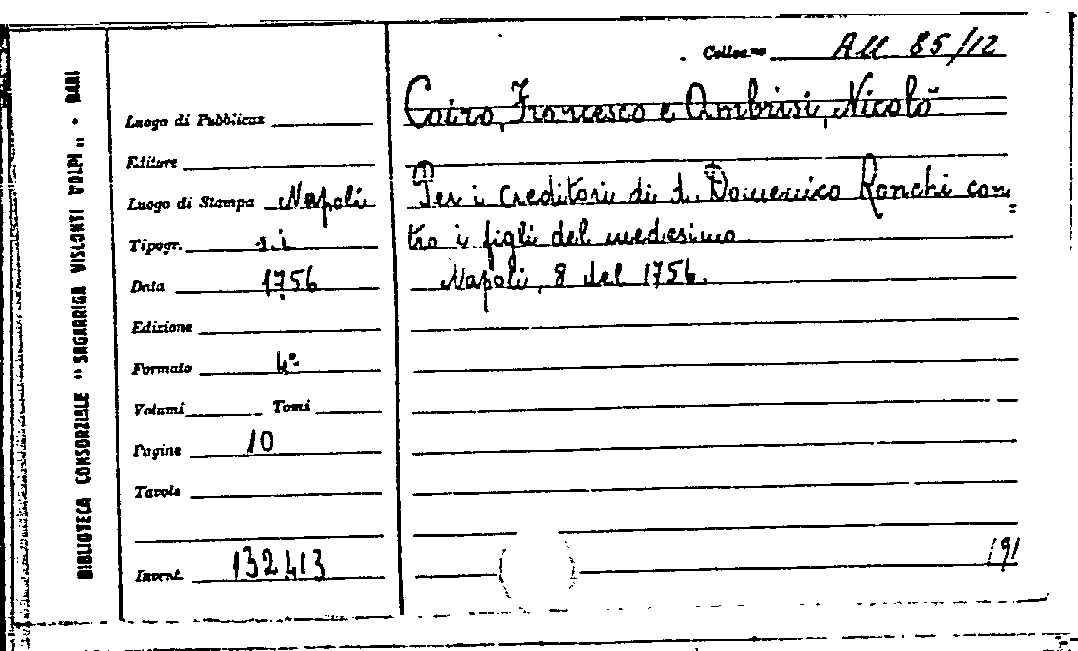 BIBLIOTECA CONSORZIALE "SAGARRIGA VISCONTI VOLPI" - BARI
Colloc.ne All 85/12
Luogo di Pubblicaz.
Editore
Luogo di Stampa Napoli
Tipogr. s.i
Data 1756
Edizione
Formato 4°
Volumi Tomi
Pagine 10
Tavole
Invent. 132413
Cairo, Francesco e Ambrisi, Nicolò
Per i creditori di d. Domenico Ronchi con=
tro i figli del medesimo
Napoli, 8 del 1756.
191